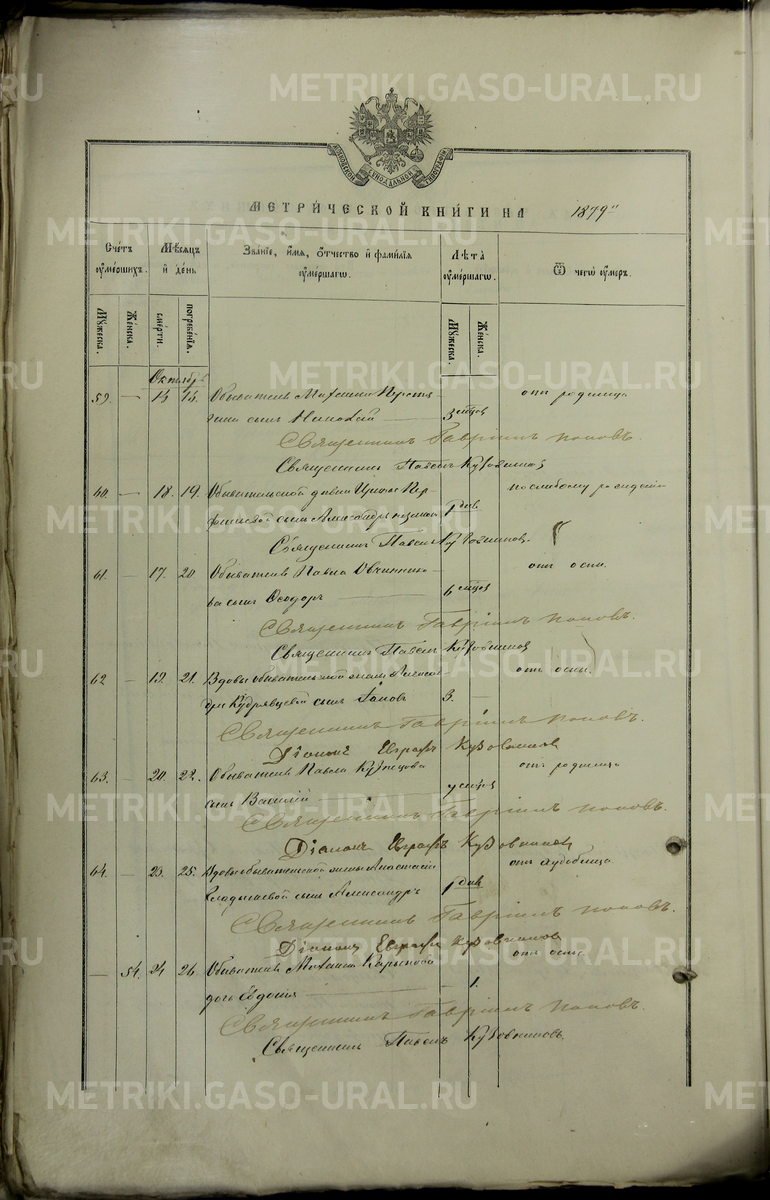 METRIKI.GASO-URAL.RU
МЕТРИЧЕСКОЙ КНИГИ НА 1879
Счетъ умершихъ.
Мѣсяцъ и день
Званіе, имя, отчество и фамилія умершаго.
Лѣта умершаго.
Ѿ чегѡ умеръ.
Мужеска.
Женска.
смерти.
погребенія.
Мужеска.
Женска.
Октябрь
59. — 13 15. Обывателя Михаила
сынъ Николай — 3 мѣсяц.
отъ родимца
Священникъ Гавріилъ Поповъ.
Священникъ Павелъ Кузовниковъ
60. — 18. 19. Обывательской дѣвки
сынъ Александръ 1 дня
по слабому рожденію
Священникъ Павелъ Кузовниковъ.
61. — 17. 20. Обывателя Павла Овчинникова
сынъ Ѳеодоръ — 6 мѣсяц.
отъ оспы.
Священникъ Гавріилъ Поповъ.
Священникъ Павелъ Кузовниковъ
62 — 19. 21. Вдовы обывательской жены
Кудрявцевой сынъ Іаковъ 3. —
отъ оспы.
Священникъ Гавріилъ Поповъ.
Діаконъ Евграфъ Кузовниковъ
63. — 20. 22. Обывателя Павла Кузнецова
сынъ Василій
отъ родимца
Священникъ Гавріилъ Поповъ.
Діаконъ Евграфъ Кузовниковъ
64. — 23. 25. Вдовы обывательской жены Анастасіи
сынъ Александръ 1 дня
отъ худобища.
Священникъ Гавріилъ Поповъ.
Діаконъ Евграфъ Кузовниковъ
— 54. 24 26. Обывателя Михаила
дочь Евдокія — 1.
отъ оспы.
Священникъ Гавріилъ Поповъ.
Священникъ Павелъ Кузовниковъ.